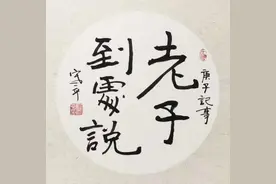 老子
到處說
庚子記事